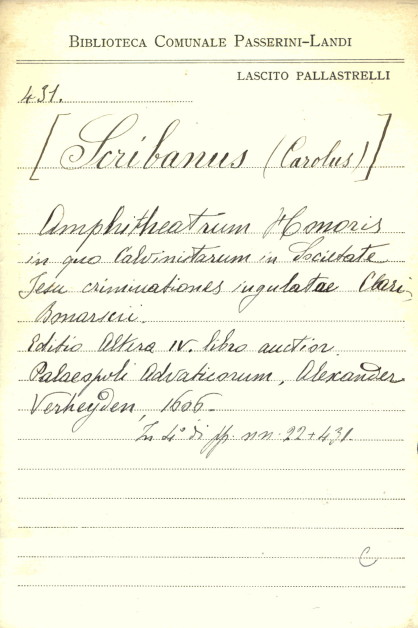 BIBLIOTECA COMUNALE PASSERINI-LANDI
LASCITO PALLASTRELLI
431.
[Scribanus (Carolus)]
Amphitheatrum Honoris
in quo Calvinistarum in Societate
Jesu criminationes iugulatae Clari
Bonarscii.
Editio Altera IV. libro auctior.
Palaespoli Advaticorum, Alexander
Verheyden, 1606-
In 4° di pp. nn. 22+431.
C